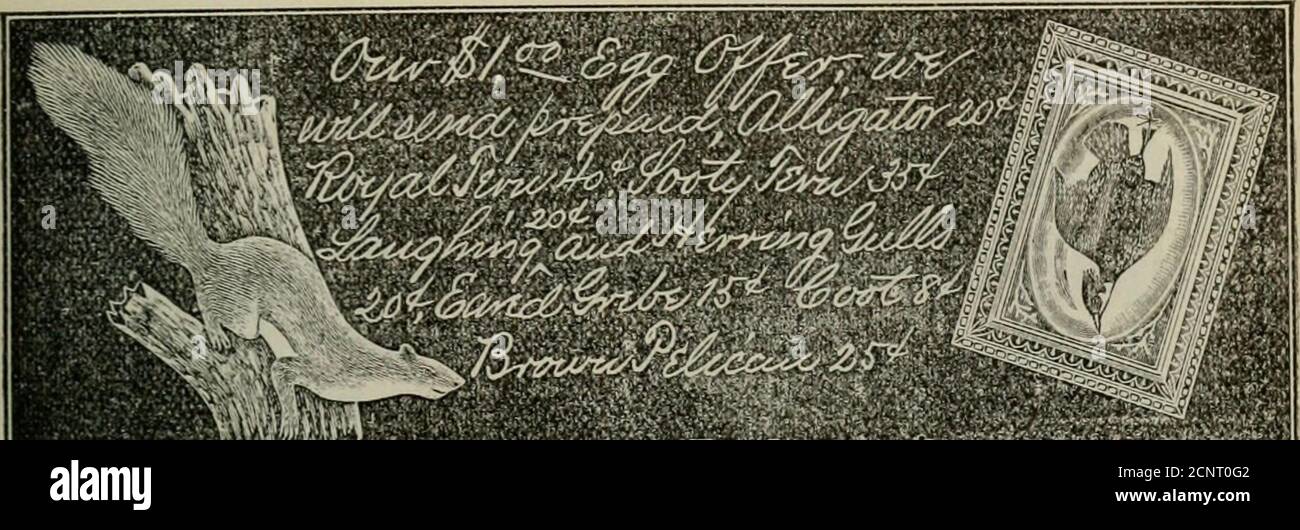 Our $1.00 Egg Offer, we
will send prepaid, Alligator 20¢
Royal Tern 40¢ Sooty Tern 35¢
Laughing 20¢ and Herring Gulls
20¢, Eared Grebe 15¢ Coot 8¢
Brown Pelican 25¢
a
a
a
a
alamy
Image ID: 2CNT0G2
www.alamy.com